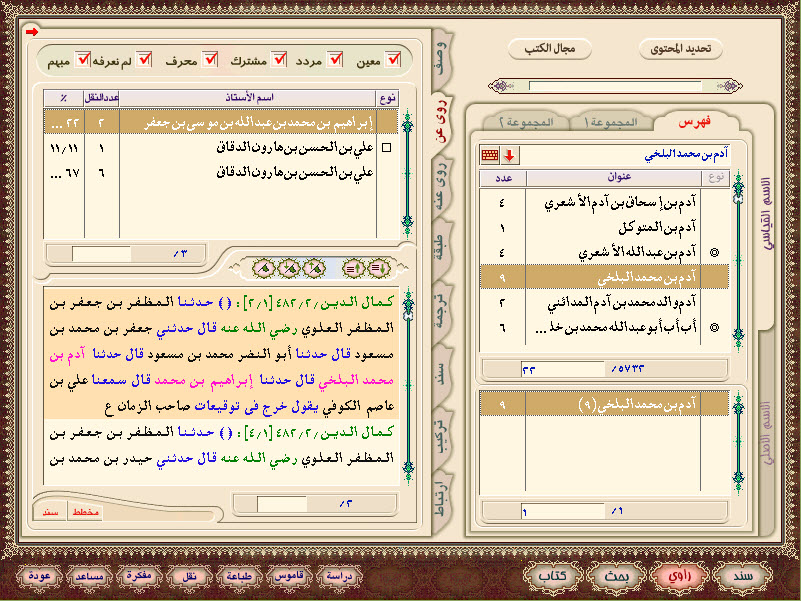 تحديد المحتوى
مجال الكتب
فهرس
المجموعة ١
المجموعة ٢
آدم بن محمد البلخي
نوع عنوان عدد
آدم بن إسحاق بن آدم الأشعري ٤
آدم بن المتوكل ١
آدم بن عبدالله الأشعري ٤
آدم بن محمد البلخي ٩
آدم والد محمد بن آدم المدائني ٢
أب أب أبو عبدالله محمد بن خذ ... ٦
/٥٧٣٢ ٢٢
آدم بن محمد البلخي (٩) ٩
/١ ١
الاسم القياسي
الاسم الأصلي
وصف
روى عن
روى عنه
طبقة
ترجمة
سند
تركيب
ارتباط
معين
مردد
مشترك
محرف
لم نعرفه
مبهم
نوع اسم الأستاذ عدد النقل ٪
إبراهيم بن محمد بن عبدالله بن موسى بن جعفر ٢ ٢٢ ...
علي بن الحسن بن هارون الدقاق ١ ١١/١١
علي بن الحسن بن هارون الدقاق ٦ ٦٧ ...
/٣
كمال الدين/٤٨٢/٢ [٢/١] : () حدثنا المظفر بن جعفر بن
المظفر العلوي رضي الله عنه قال حدثني جعفر بن محمد بن
مسعود قال حدثنا أبو النضر محمد بن مسعود قال حدثنا آدم بن
محمد البلخي قال حدثنا إبراهيم بن محمد قال سمعنا علي بن
عاصم الكوفي يقول خرج في توقيعات صاحب الزمان ع
كمال الدين/٤٨٢/٢ [٤/١] : () حدثنا المظفر بن جعفر بن
المظفر العلوي رضي الله عنه قال حدثني حيدر بن محمد بن
/٢
مخطط
سند
سند
راوي
بحث
كتاب
دراسة
قاموس
طباعة
نقل
مفكرة
مساعد
عودة